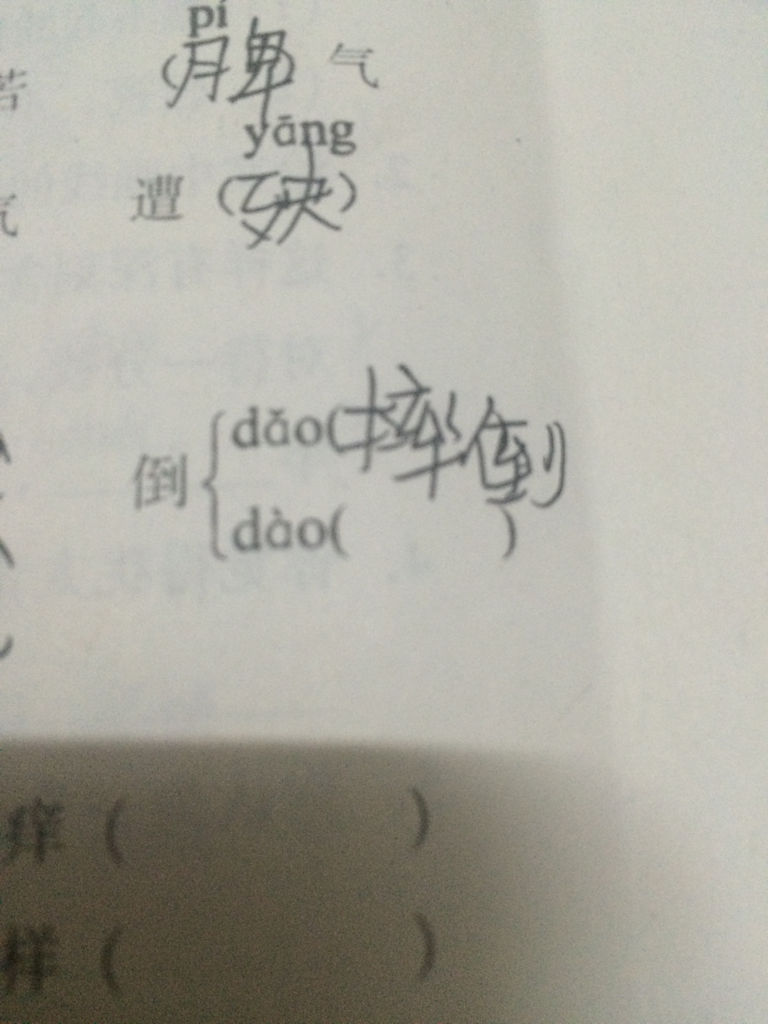 pí
若 (脾) 气
yāng
气 遭 (殃)
倒 dǎo(摔倒)
dào( )
痒 ( )
样 ( )